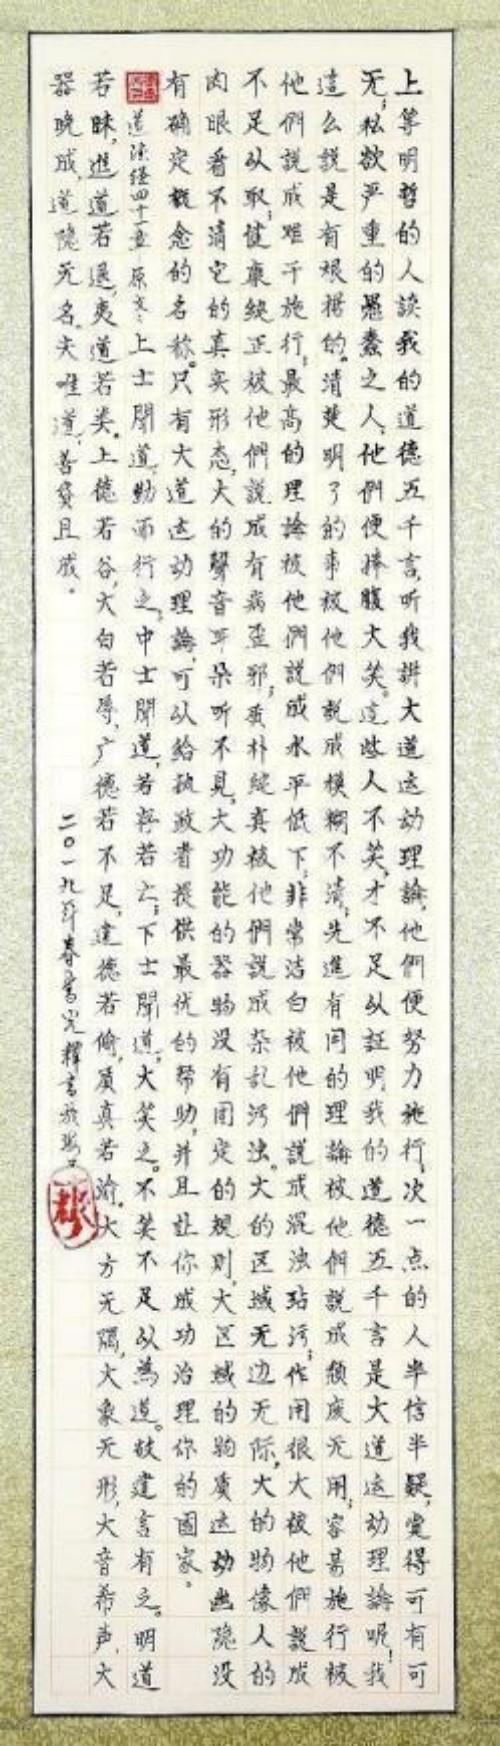 上等明哲的人談我的道德五千言,听我讲大道运动理論,他們便努力施行;次一点的人半信半疑,覺得可有可
无;私欲严重的愚蠢之人,他們便捧腹大笑。这些人不笑,才不足以証明我的道德五千言是大道运动理論呢!我
這么說是有根据的。清楚明了的事被他們說成模糊不清;先進有用的理論被他們說成頹废无用;容易施行被
他們說成难于施行;最高的理論被他們說成水平低下;非常洁白被他們說成混浊玷污;作用很大被他們說成
不足以取;健康純正被他們說成有病歪邪;质朴純真被他們說成杂乱污浊。大的区域无边无际,大的物像人的
肉眼看不清它的真实形态,大的聲音耳朵听不見,大功能的器物没有固定的規則,大区域的物质运动幽隐没
有确定概念的名称。只有大道运动理論,可以給执政者提供最优的帮助,并且让你成功治理你的國家。
道德经四十一章原文:上士聞道,勤而行之;中士聞道,若存若亡;下士聞道,大笑之。不笑不足以為道。故建言有之。明道
若昧,進道若退,夷道若类。上德若谷,大白若辱,广德若不足,建德若偷,质真若渝。大方无隅,大象无形,大音希声,大
器晚成,道隐无名。夫唯道,善貸且成。
二〇一九年春